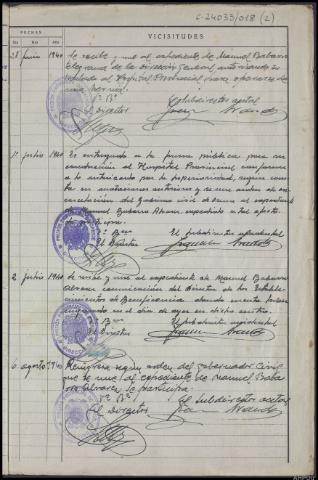 C-24033/018 (2)
FECHAS
VICISITUDES
Día Mes Año
28 junio 1940 Se recibe y une al expediente de Manuel Babarro
telegrama de la Dirección General, autorizando su
traslado al Hospital Provincial para operarse de
una hernia.
Vº Bº El subdirector acctal
El Director
1º julio 1940 Es entregado a la fuerza pública para su
conducción al Hospital Provincial conforme
a lo autorizado por la superioridad, según cons
ta en anotaciones anteriores y se une orden de
del Gobierno civil de Orense al expediente
de Manuel Babarro Alvarez expedida a tal efecto.
Vº Bº El Subdirector accidental
El Director
2 julio 1940 Se recibe y une al expediente de Manuel Babarro
Alvarez comunicación del Director de los Estable
cimientos de Beneficencia dando cuenta haber
ingresado en el día de ayer en dicho centro.
Vº Bº El subdirector accidental
El Director
6 agosto 1940 Reingresa según orden del Gobernador Civil
que se une al expediente de Manuel Baba
rro Alvarez, la
Vº Bº El Subdirector acctal
El Director
AHPOU